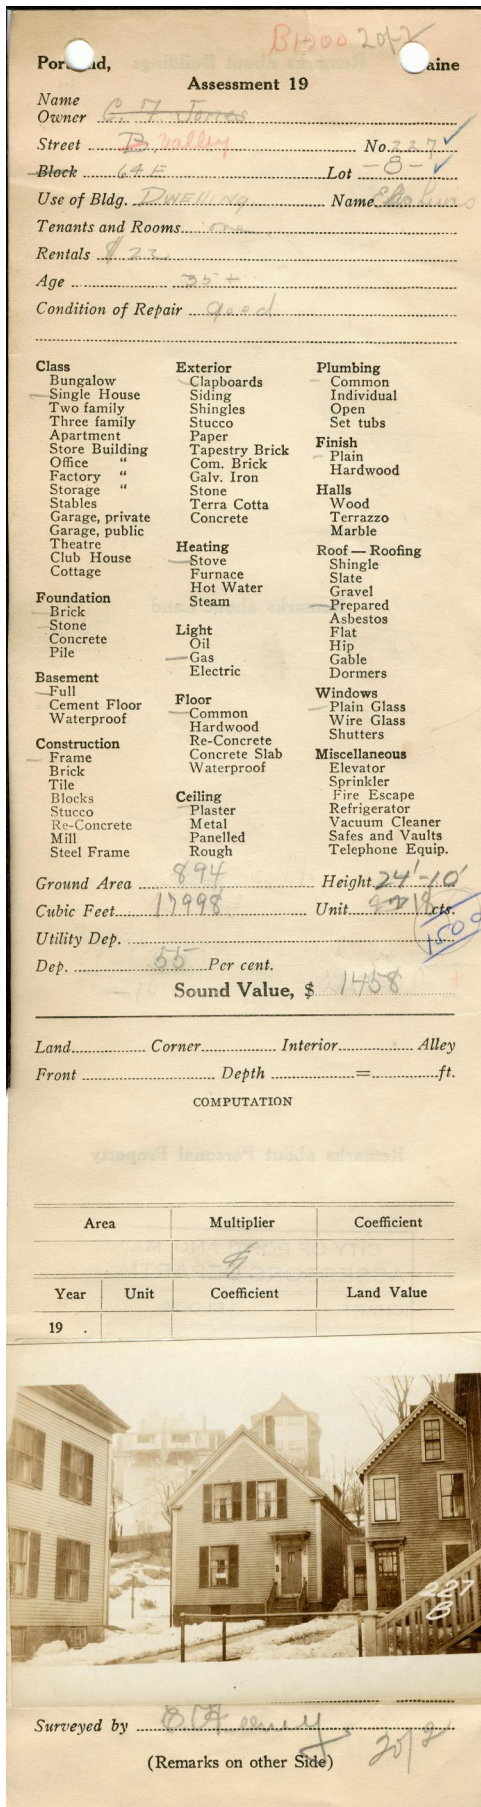 B1200 2 of 2
Portland, Maine
Assessment 19
Name
Owner C. F. Jones
Street B Valley No. 227
Block 64E Lot -8-
Use of Bldg. DWELLING Name
Tenants and Rooms one
Rentals $ 22
Age 35 +
Condition of Repair good
Class
Bungalow
Single House
Two family
Three family
Apartment
Store Building
Office "
Factory "
Storage "
Stables
Garage, private
Garage, public
Theatre
Club House
Cottage
Foundation
Brick
Stone
Concrete
Pile
Basement
Full
Cement Floor
Waterproof
Construction
Frame
Brick
Tile
Blocks
Stucco
Re-Concrete
Mill
Steel Frame
Exterior
Clapboards
Siding
Shingles
Stucco
Paper
Tapestry Brick
Com. Brick
Galv. Iron
Stone
Terra Cotta
Concrete
Heating
Stove
Furnace
Hot Water
Steam
Light
Oil
Gas
Electric
Floor
Common
Hardwood
Re-Concrete
Concrete Slab
Waterproof
Ceiling
Plaster
Metal
Panelled
Rough
Plumbing
Common
Individual
Open
Set tubs
Finish
Plain
Hardwood
Halls
Wood
Terrazzo
Marble
Roof — Roofing
Shingle
Slate
Gravel
Prepared
Asbestos
Flat
Hip
Gable
Dormers
Windows
Plain Glass
Wire Glass
Shutters
Miscellaneous
Elevator
Sprinkler
Fire Escape
Refrigerator
Vacuum Cleaner
Safes and Vaults
Telephone Equip.
Ground Area 894 Height 24'-10'
Cubic Feet 17998 Unit 18 cts.
1500
Utility Dep.
Dep. 55 Per cent.
Sound Value, $ 1458
Land Corner Interior Alley
Front Depth = ft.
COMPUTATION
Area Multiplier Coefficient
Year Unit Coefficient Land Value
19 .
227
B
Surveyed by
(Remarks on other Side) 2 of 2